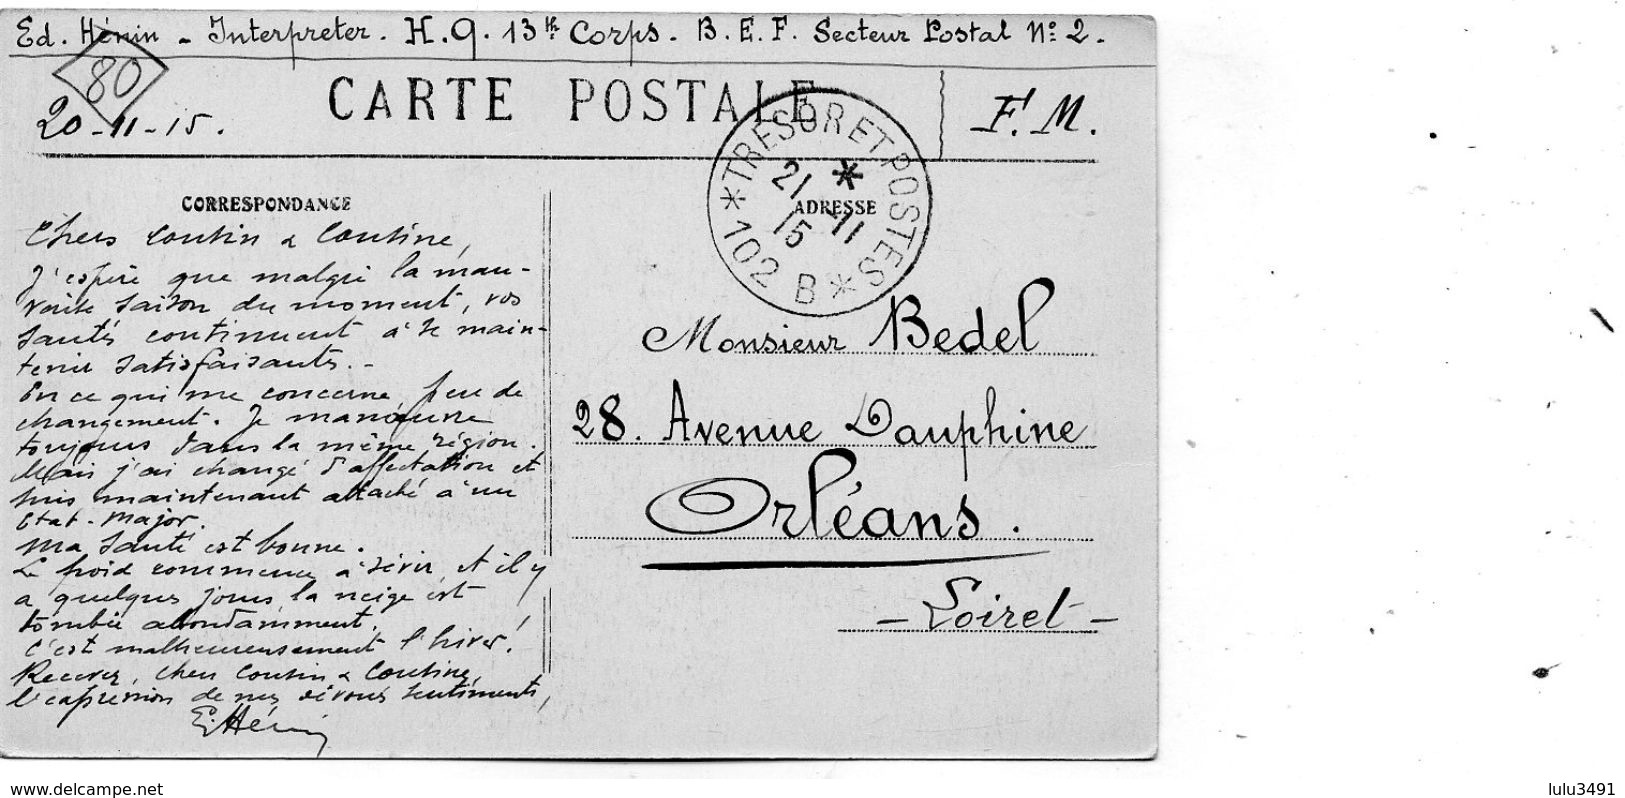 Ed. Hénin - Interpreter. H.Q. 13th Corps. B.E.F. Secteur Postal N° 2.
80
20-11-15.
CARTE POSTALE
F.M.
*TRESOR ET POSTES*
21 *
15 11
102 B
CORRESPONDANCE
ADRESSE
Chers Cousin & Cousine,
J'espère que malgré la mau-
vaise saison du moment, vos
santés continuent à se main-
tenir satisfaisantes. -
En ce qui me concerne, peu de
changement. Je manœuvre
toujours dans la même région.
Mais j'ai changé d'affectation et
suis maintenant attaché à un
Etat-Major.
Ma santé est bonne.
Le froid commence à sévir, et il y
a quelques jours la neige est
tombée abondamment.
C'est malheureusement l'hiver!
Recevez, chers Cousin & Cousine,
l'expression de mes dévoués sentiments,
E. Hénin
Monsieur Bedel
28. Avenue Dauphine
Orléans.
- Loiret -
lulu3491